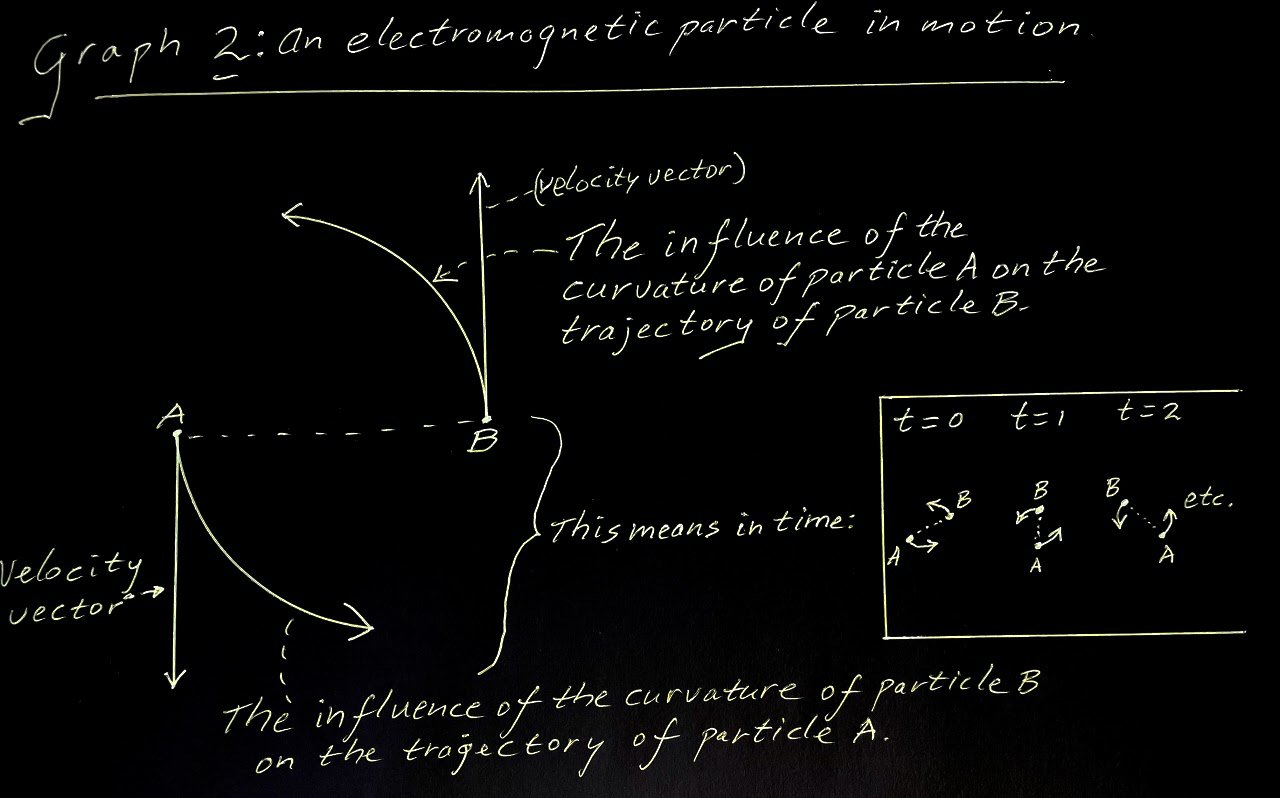 Graph 2: An electromagnetic particle in motion.
(velocity vector)
The influence of the
curvature of particle A on the
trajectory of particle B.
A
B
Velocity
vector
This means in time:
t=0 t=1 t=2
B B B etc.
A A A
The influence of the curvature of particle B
on the trajectory of particle A.